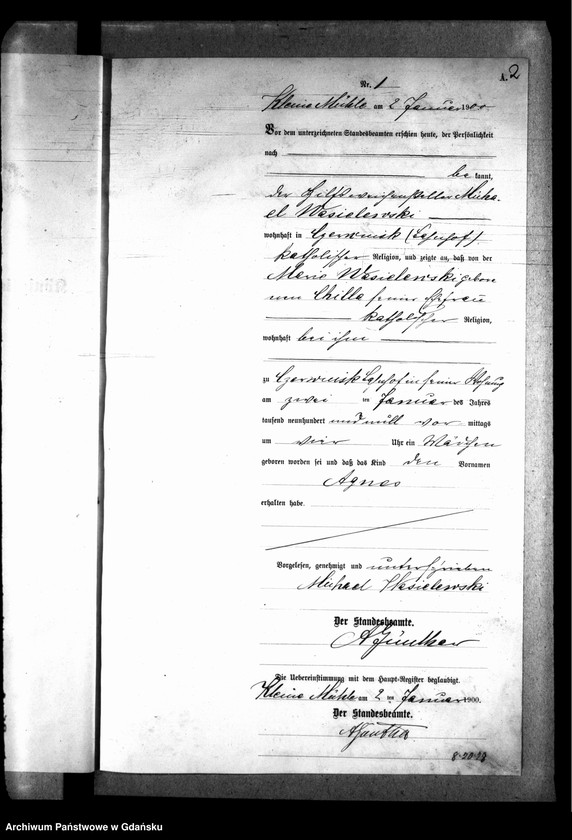 A. 2
Nr. 1
Kleine Mühle am 2 Januar 1900
Vor dem unterzeichneten Standesbeamten erschien heute, der Persönlichkeit
nach
be kannt,
der Hilfsweichensteller Micha-
el Wesielewski
wohnhaft in Czerwinsk (Bahnhof)
katholischer Religion, und zeigte an, daß von der
Marie Wesielewski gebore
nen seiner Ehefrau
katholischer Religion,
wohnhaft bei ihm
zu Czerwinsk Bahnhof in seiner Wohnung
am zwei ten Januar des Jahres
tausend neunhundert und null vor mittags
um vier Uhr ein Mädchen
geboren worden sei und daß das Kind den Vornamen
Agnes
erhalten habe.
Vorgelesen, genehmigt und unterschrieben
Michael Wesielewski
Der Standesbeamte.
A Günther
Die Uebereinstimmung mit dem Haupt-Register beglaubigt.
Kleine Mühle am 2 ten Januar 1900.
Der Standesbeamte.
A Günther
Archiwum Państwowe w Gdańsku